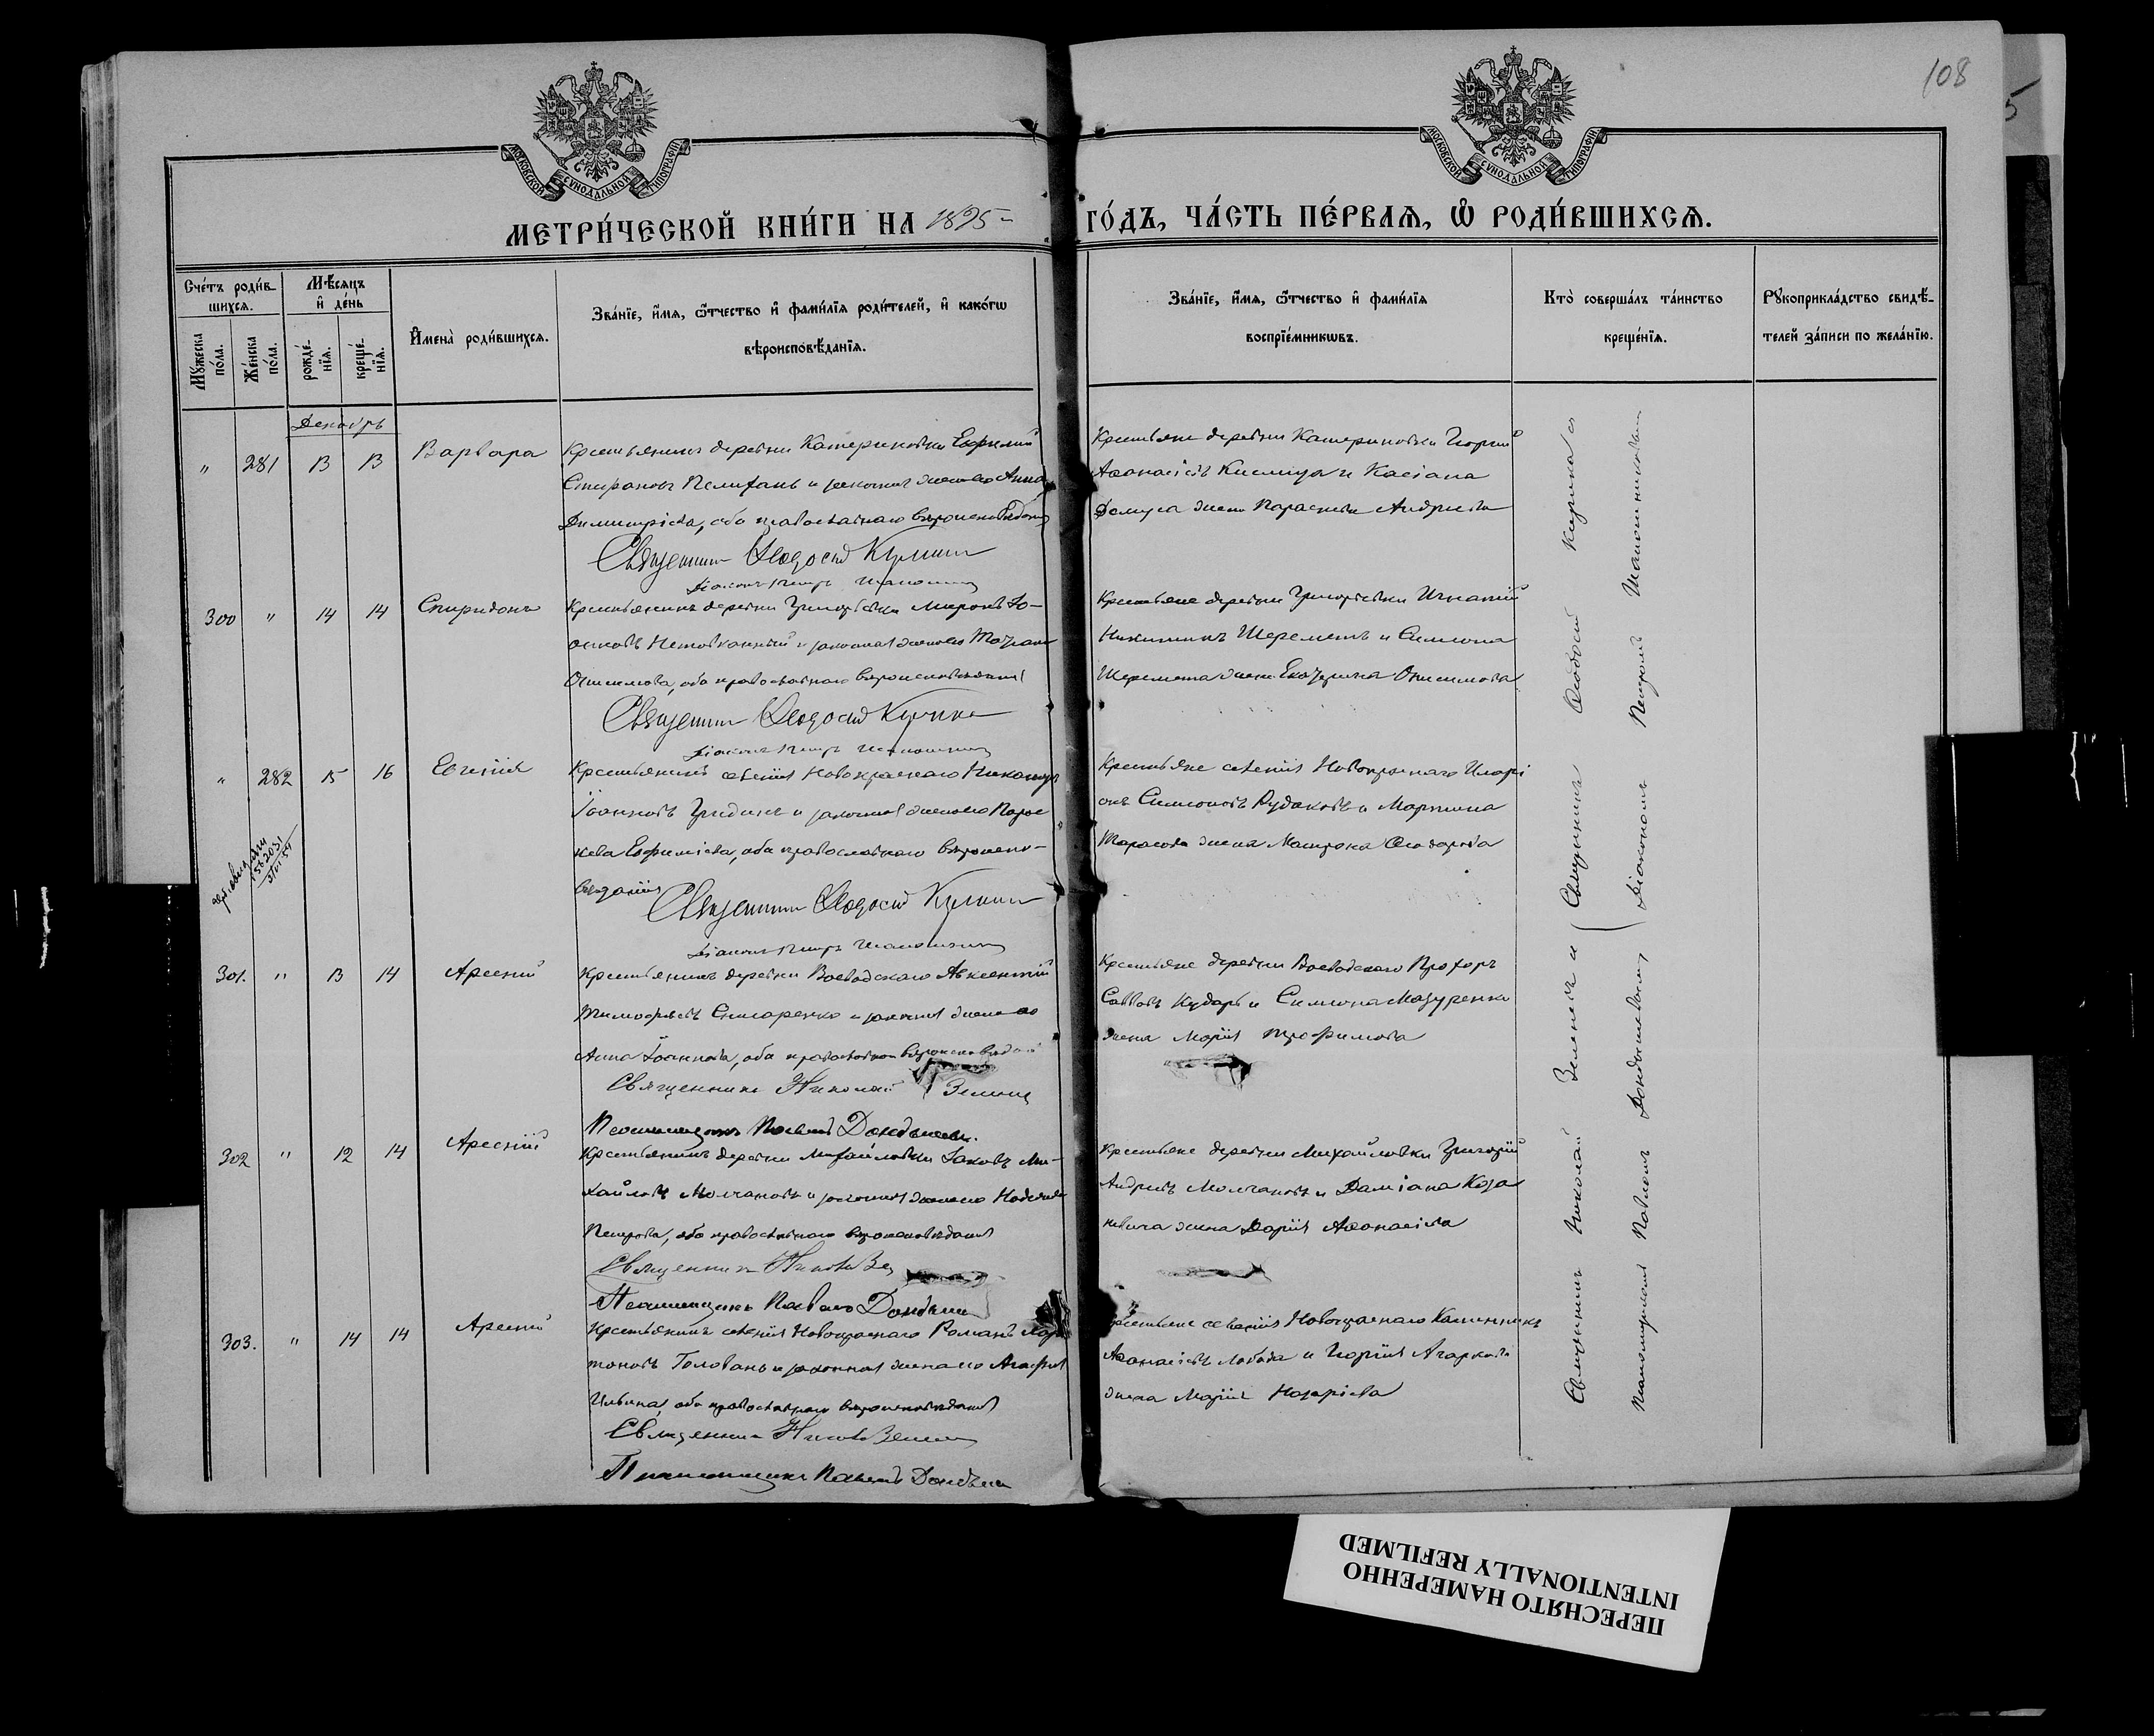 108
5
МОСКОВСКОЙ СѴНОДАЛЬНОЙ ТИПОГРАФІИ
МОСКОВСКОЙ СѴНОДАЛЬНОЙ ТИПОГРАФІИ
МЕТРИ́ЧЕСКОЙ КНИ́ГИ НА 1895 ГО́ДЪ, ЧА́СТЬ ПЕ́РВАЯ, Ѡ҆ РОДИ́ВШИХСЯ.
Сче́тъ роди́в-
шихся.
Мꙋ́жеска по́ла.
Же́нска по́ла.
Мѣ́сяцъ
и҆ де́нь
рожде́-
нїѧ.
креще́-
нїѧ.
И҆мена̀ роди́вшихся.
Зва́нїе, и҆́мѧ, ѻ҆́тчество и҆ фами́лїѧ роди́телей, и҆ како́гѡ
вѣроисповѣ́данїѧ.
Зва́нїе, и҆́мѧ, ѻ҆́тчество и҆ фами́лїѧ
воспрїе́мникѡвъ.
Кто̀ соверша́лъ та́инство
креще́нїѧ.
Рꙋкоприкла́дство свидѣ́-
телей за́писи по жела́нїю.
Декабрь
" 281 13 13 Варвара
Крестьянинъ деревни Катериновки Евфимій
Спиридоновъ и законная жена его Анна
Димитріева, оба православнаго вѣроисповѣданія
Священникъ Ѳеодосій
Діаконъ Петръ
Крестьяне деревни Катериновки Георгій
Аѳанасіевъ и Касіана
жена Параскева Андреева
300 " 14 14 Спиридонъ
Крестьянинъ деревни Григорьевки Миронъ Іо-
и законная жена его Татіана
Онисимова, оба православнаго вѣроисповѣданія
Священникъ Ѳеодосій
Діаконъ Петръ
Крестьяне деревни Григорьевки Игнатій
Никитинъ Шереметъ и Симеона
Шеремета жена Екатерина Онисимова
" 282 15 16 Евгенія
Крестьянинъ селенія Новокраснаго Никаноръ
Іоанновъ Гридинъ и законная жена его Парас
кева Евфиміева, оба православнаго вѣроиспо-
вѣданія
Священникъ Ѳеодосій
Діаконъ Петръ
Крестьяне селенія Новокраснаго Иларі
онъ Симеоновъ Рудаковъ и Мартина
Тарасова жена Матрона Ѳеодорова
301. " 13 14 Арсеній
Крестьянинъ деревни Воеводскаго Авксентій
Тимофеевъ Слюсаренко и законная жена его
Анна Іоаннова, оба православнаго вѣроисповѣданія
Священникъ Николай Зелен
Псаломщикъ Павелъ
Крестьяне деревни Воеводскаго Прохоръ
Саввовъ и Симеона Мазуренко
жена Марія Трофимова
302 " 12 14 Арсеній
Крестьянинъ деревни Михайловки Іаковъ Ми-
хайловъ Молчановъ и законная жена его Надежда
Петрова, оба православнаго вѣроисповѣданія
Священникъ Николай
Псаломщикъ Павелъ
Крестьяне деревни Михайловки Григорій
Андреевъ Молчановъ и Даміана Коза
кевича жена Дарія Аѳанасіева
303. " 14 14 Арсеній
Крестьянинъ селенія Новокраснаго Романъ Хари
тоновъ Головань и законная жена его Агафія
Ильина, оба православнаго вѣроисповѣданія
Священникъ Николай
Псаломщикъ Павелъ
Крестьяне селенія Новокраснаго Каллиникъ
Аѳанасіевъ Лобода и Георгія Агаркова
жена Марія Назаріева
Священникъ Николай и Священникъ Ѳеодосій
Псаломщикъ Павломъ Діакономъ Петромъ
ПЕРЕСНЯТО НАМЕРЕННО
INTENTIONALLY REFILMED